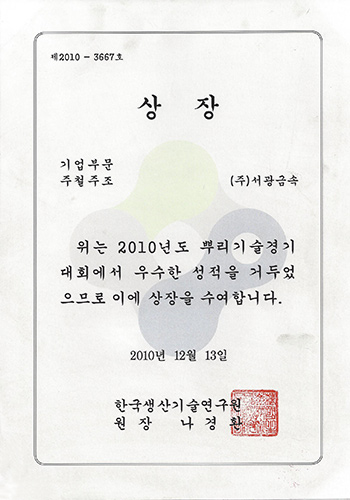 제2010 - 3667호
상 장
기업부문
주철주조 (주)서광금속
위는 2010년도 뿌리기술경기
대회에서 우수한 성적을 거두었
으므로 이에 상장을 수여합니다.
2010년 12월 13일
한국생산기술연구원
원장 나경환